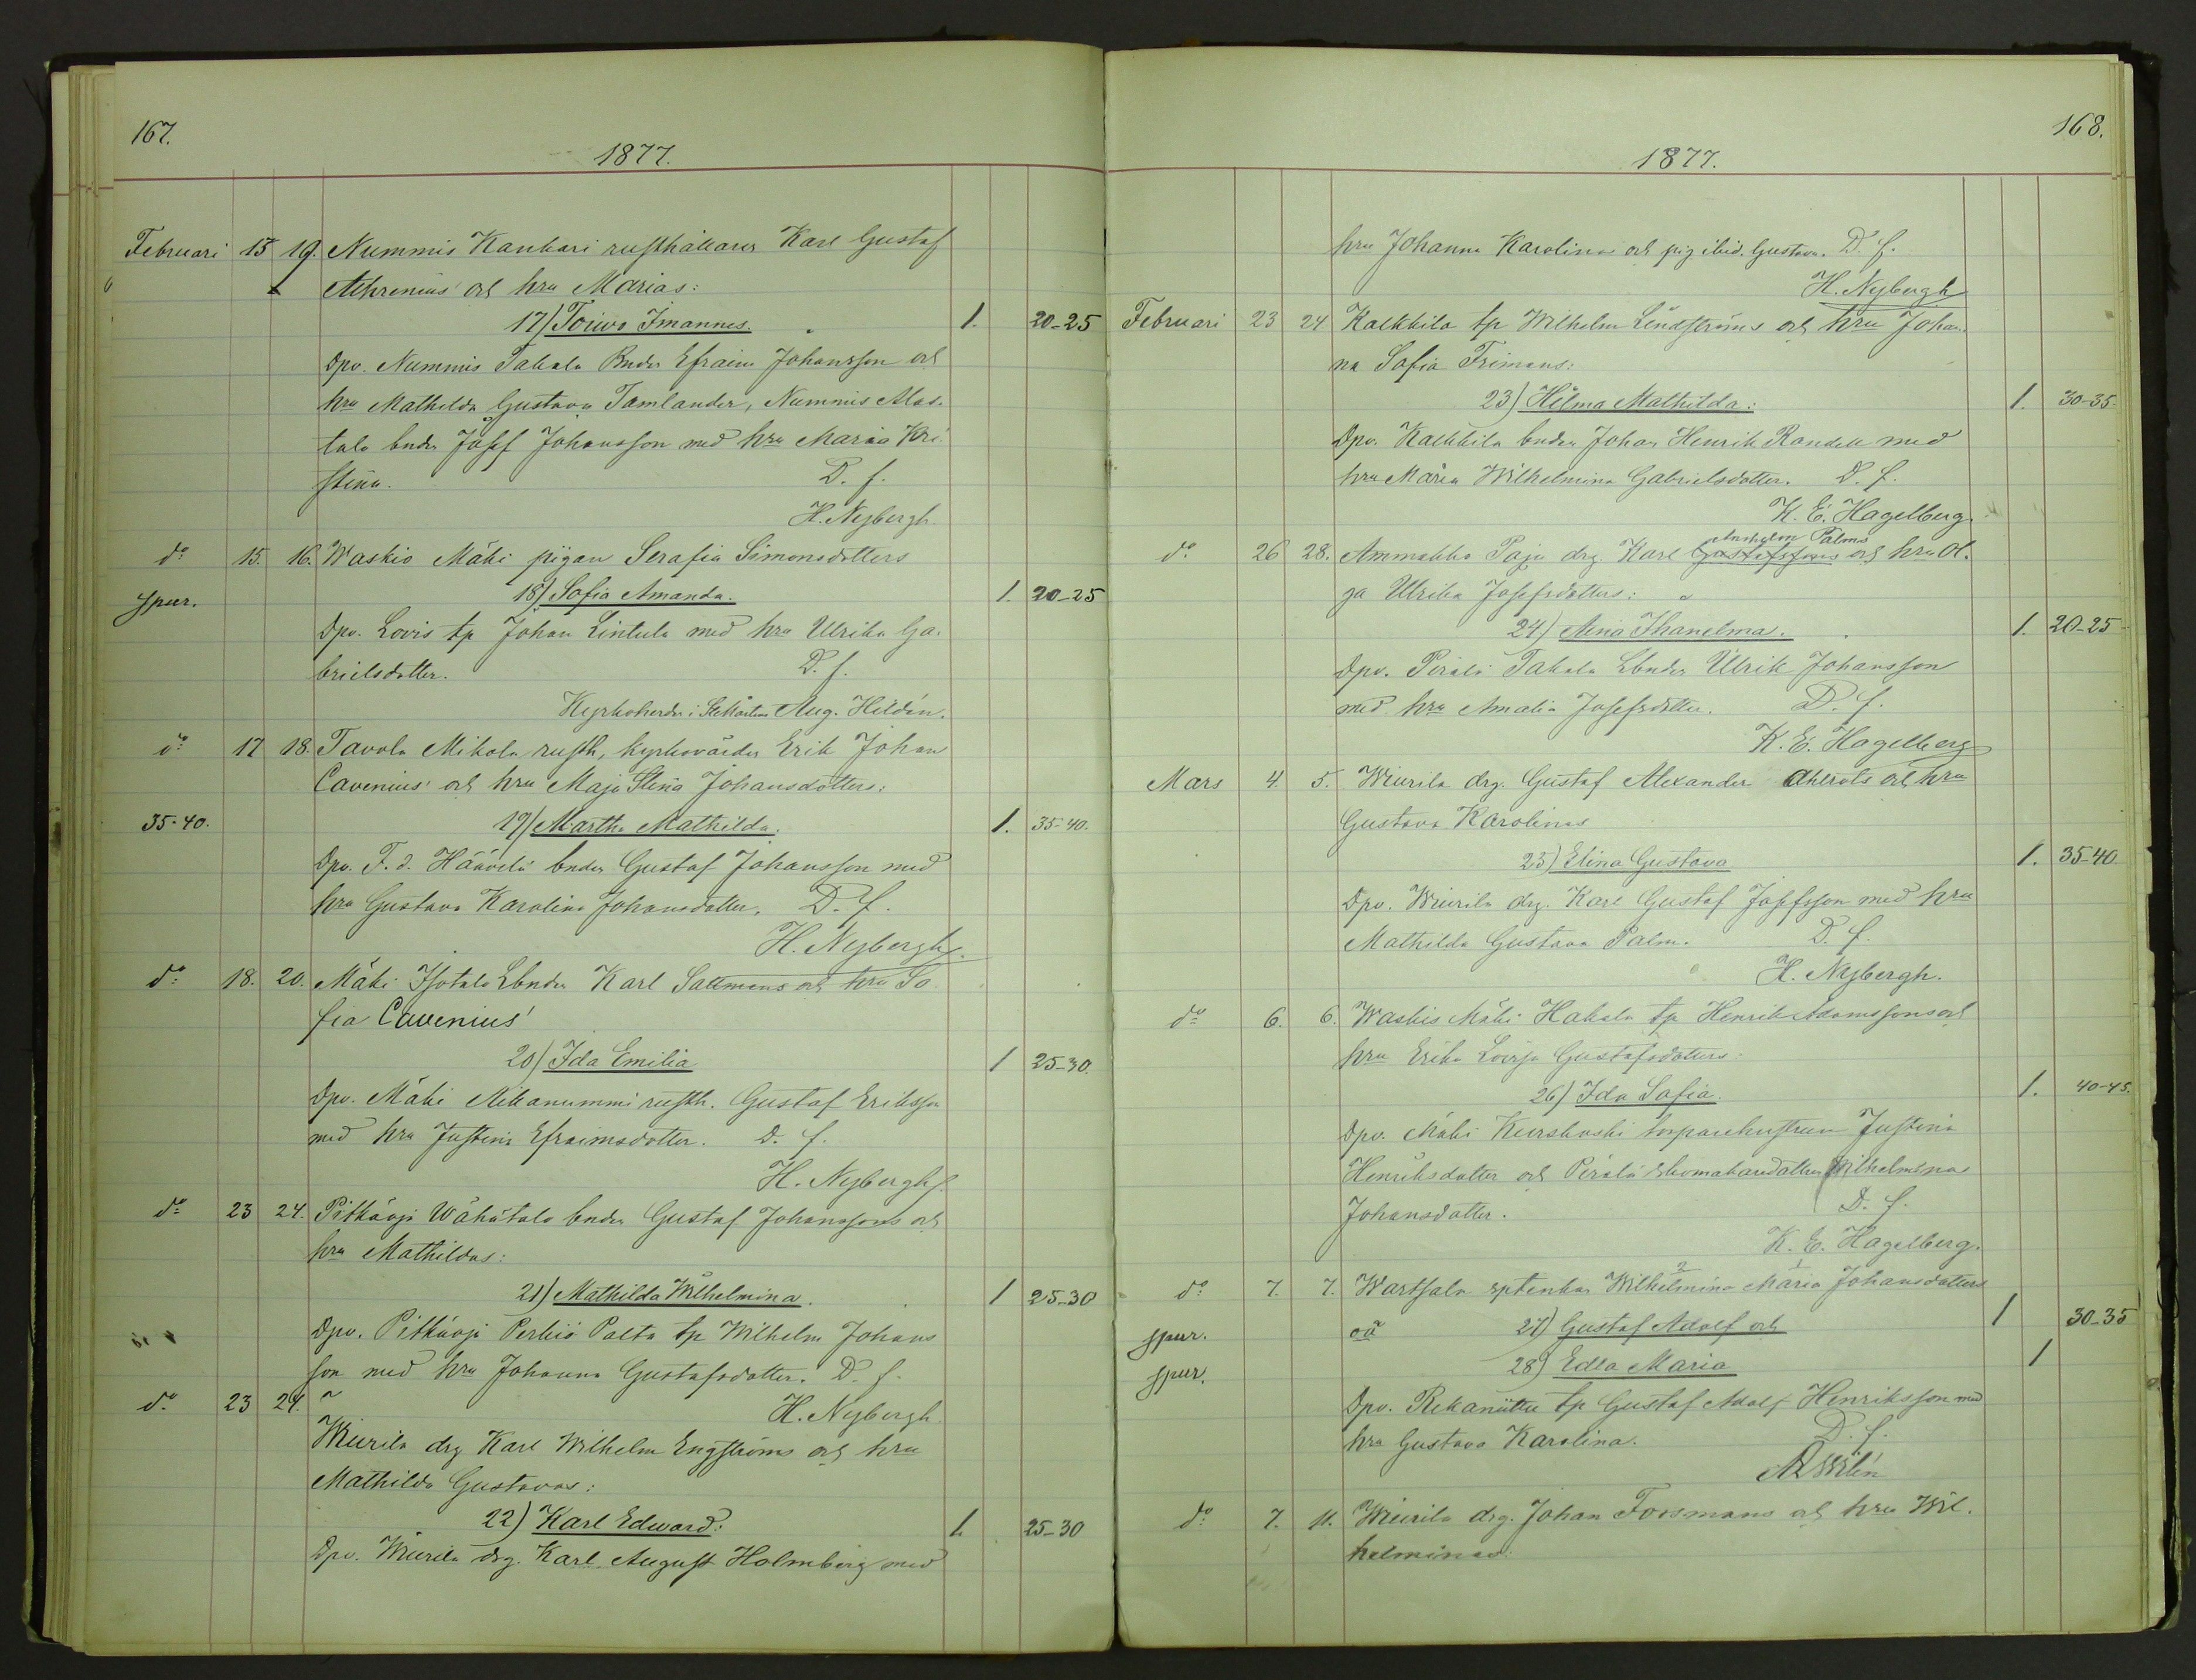 167.
1877.
Februari 15 19. Nummis Kankari rusthållares Karl Gustaf
Athrenius' och hru Marias:
17) Toiwo Imannes. 1. 20-25
Dpv. Nummis Takala Bndr Efraim Johansson och
hru Mathilda Gustava Tamlander, Nummis Alas-
talo bndr Josef Johansson med hru Maria Kri-
stina. D. f.
H. Nybergh
do 15. 16. Waskio Mäki pigan Serafia Simonsdotters
spur. 18) Sofia Amanda. 1. 20-25
Dpv. Lovis tp Johan Lintula med hru Ulrika Ga-
brielsdotter. D. f.
Kyrkoherde i St Mårtens Aug. Hildén.
do 17 18. Tavola Mikola rusth, kyrkovärden Erik Johan
Cavenius' och hru Maja Stina Johansdotters:
35-40. 19) Martha Mathilda. 1. 35-40.
Dpv. F. d. Häävelä bndr Gustaf Johansson med
hru Gustava Karolina Johansdotter. D. f.
H. Nybergh.
do 18. 20. Mäki Isotalo Lbndr Karl Sallmens och hru So-
fia Cavenius'
20) Ida Emilia 1 25-30.
Dpv. Mäki Mikanummi rusth. Gustaf Eriksson
med hru Justina Efraimsdotter. D. f.
H. Nybergh.
do 23 24. Pitkäoja Wähätalo bndr Gustaf Johanssons och
hru Mathildas:
21) Mathilda Wilhelmina. 1 25-30
Dpv. Pitkäoja Perkiö Palta tp Wilhelm Johans
son med hru Johanna Gustafsdotter. D. f.
do 23 24. H. Nybergh.
Wiurila drg Karl Wilhelm Engströms och hru
Mathilda Gustavas:
22) Karl Edward: 1. 25-30
Dpv. Wiurila drg. Karl August Holmberg med
168.
1877.
hru Johanna Karolina och pig ibid. Gustava. D. f.
H. Nybergh
Februari 23 24 Kalkkila tp Wilhelm Lindströms och hru Johan-
na Sofia Frimans:
23) Hilma Mathilda: 1. 30-35.
Dpv. Kalkkila bndr Johan Henrik Randell med
hru Maria Wilhelmina Gabrielsdotter. D. f.
K. E. Hagelberg.
Anshelm Palms
do 26 28. Ammakko Paju drg. Karl Gustafssons och hru Ol-
ga Ulrika Josefsdotters:
24) Aina Ihanelma. 1. 20-25
Dpv. Perälä Takala Lbndr Ulrik Johansson
med hru Amalia Josefsdotter. D. f.
K. E. Hagelberg
Mars 4. 5. Wiurila drg. Gustaf Alexander Ahlrots och hru
Gustava Karolinas
25) Elina Gustava 1. 35-40
Dpv. Wiurila drg. Karl Gustaf Josefsson med hru
Mathilda Gustava Palm. D. f.
H. Nybergh.
do 6. 6. Waskio Mäki Hakala tp Henrik Adamssons och
hru Erika Lovisa Gustafsdotters:
26) Ida Sofia. 1. 40-45.
Dpv. Mäki Kurskoski torparehustrun Justina
Henriksdotter och Perälä skomakaredotter Wilhelmina
Johansdotter. D. f.
K. E. Hagelberg.
2 1
do 7. 7. Wartsala Wilhelmina Maria Johansdotters
spur. oä 27) Gustaf Adolf och 1 30-35
spur. 28) Edla Maria 1
Dpv. Rekaniittu tp Gustaf Adolf Henriksson med
hru Gustava Karolina. D. f.
do 7. 11. Wiurila drg. Johan Forsmans och hru Wil-
helminas: